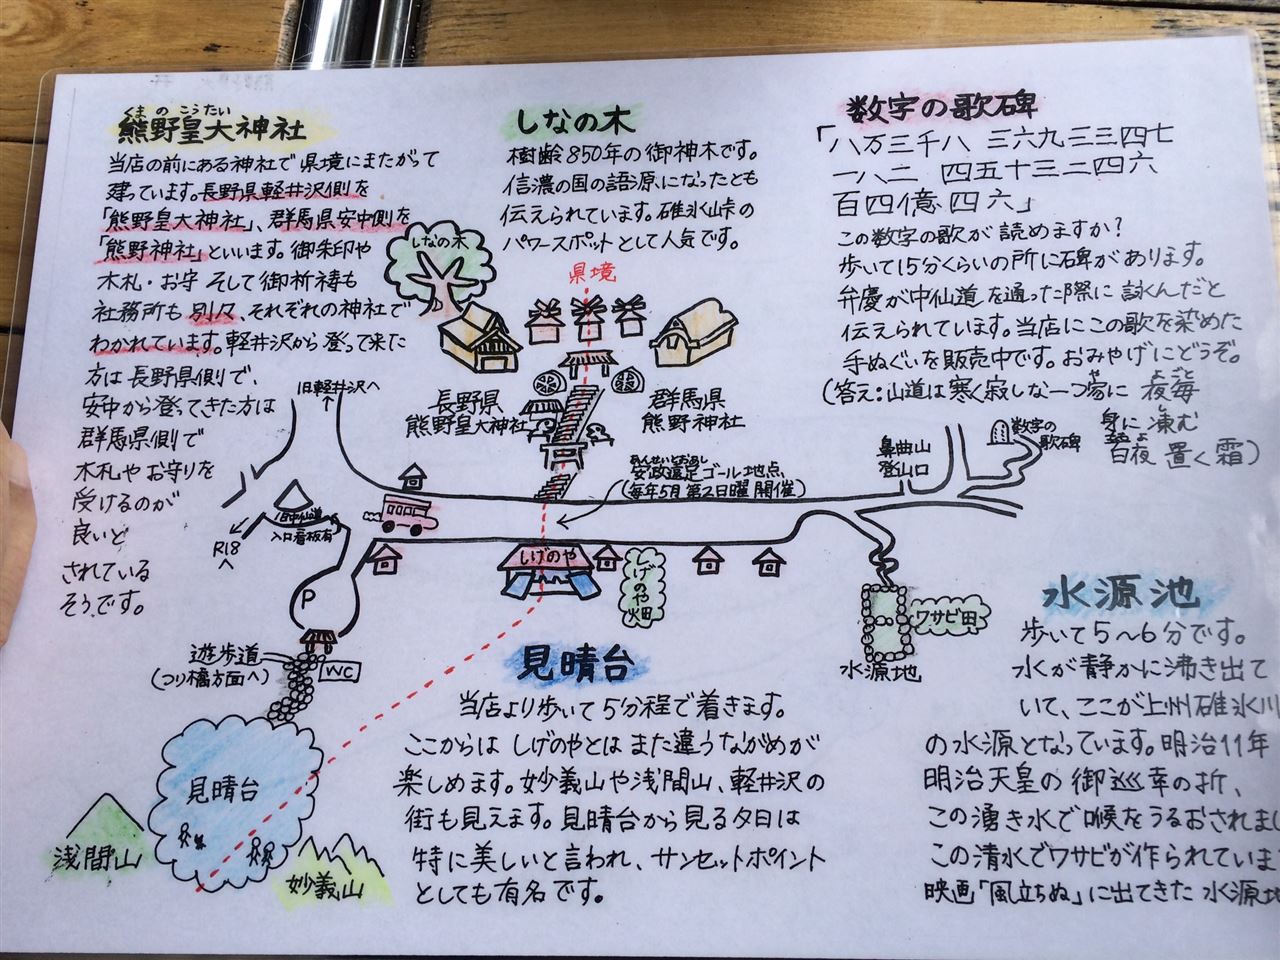 くまのこうたい
熊野皇大神社
当店の前にある神社で県境にまたがって
建っています。長野県軽井沢側を
「熊野皇大神社」、群馬県安中側を
「熊野神社」といいます。御朱印や
木札・お守 そして御祈祷も
社務所も別々、それぞれの神社で
わかれています。軽井沢から登って来た
方は長野県側で、
安中から登ってきた方は
群馬県側で
木札やお守りを
受けるのが
良いと
されている
そうです。
しなの木
樹齢850年の御神木です。
信濃の国の語源になったとも
伝えられています。碓氷山峠の
パワースポットとして人気です。
数字の歌碑
「八万三千八 三六九三三四七
一八二 四五十三二四六
百四億四六」
この数字の歌が読めますか?
歩いて15分くらいの所に碑があります。
弁慶が中仙道を通った際に詠んだと
伝えられています。当店にこの歌を染めた
手ぬぐいを販売中です。おみやげにどうぞ。
(答え:山道は寒く寂しな一つ家に 夜毎
や よごと
身に凍む
し
百夜 置く霜)
しなの木
県境
長野県
熊野皇大神社
群馬県
熊野神社
旧軽井沢へ
R18へ
旧中仙道
入口看板有
安政遠足ゴール地点
(毎年5月第2日曜開催)
鼻曲山
登山口
数字の
歌碑
しげのや
しげのや畑
P
遊歩道
(つり橋方面へ)
WC
見晴台
浅間山
妙義山
水源地
ワサビ田
見晴台
当店より歩いて5分程で着きます。
ここからはしげのやとはまた違うながめが
楽しめます。妙義山や浅間山、軽井沢の
街も見えます。見晴台から見る夕日は
特に美しいと言われ、サンセットポイント
としても有名です。
水源池
歩いて5〜6分です。
水が静かに沸き出て
いて、ここが上州碓氷川
の水源となっています。明治11年
明治天皇の御巡幸の折、
この湧き水で喉をうるおされまし
この清水でワサビが作られていま
映画「風立ちぬ」に出てきた水源地